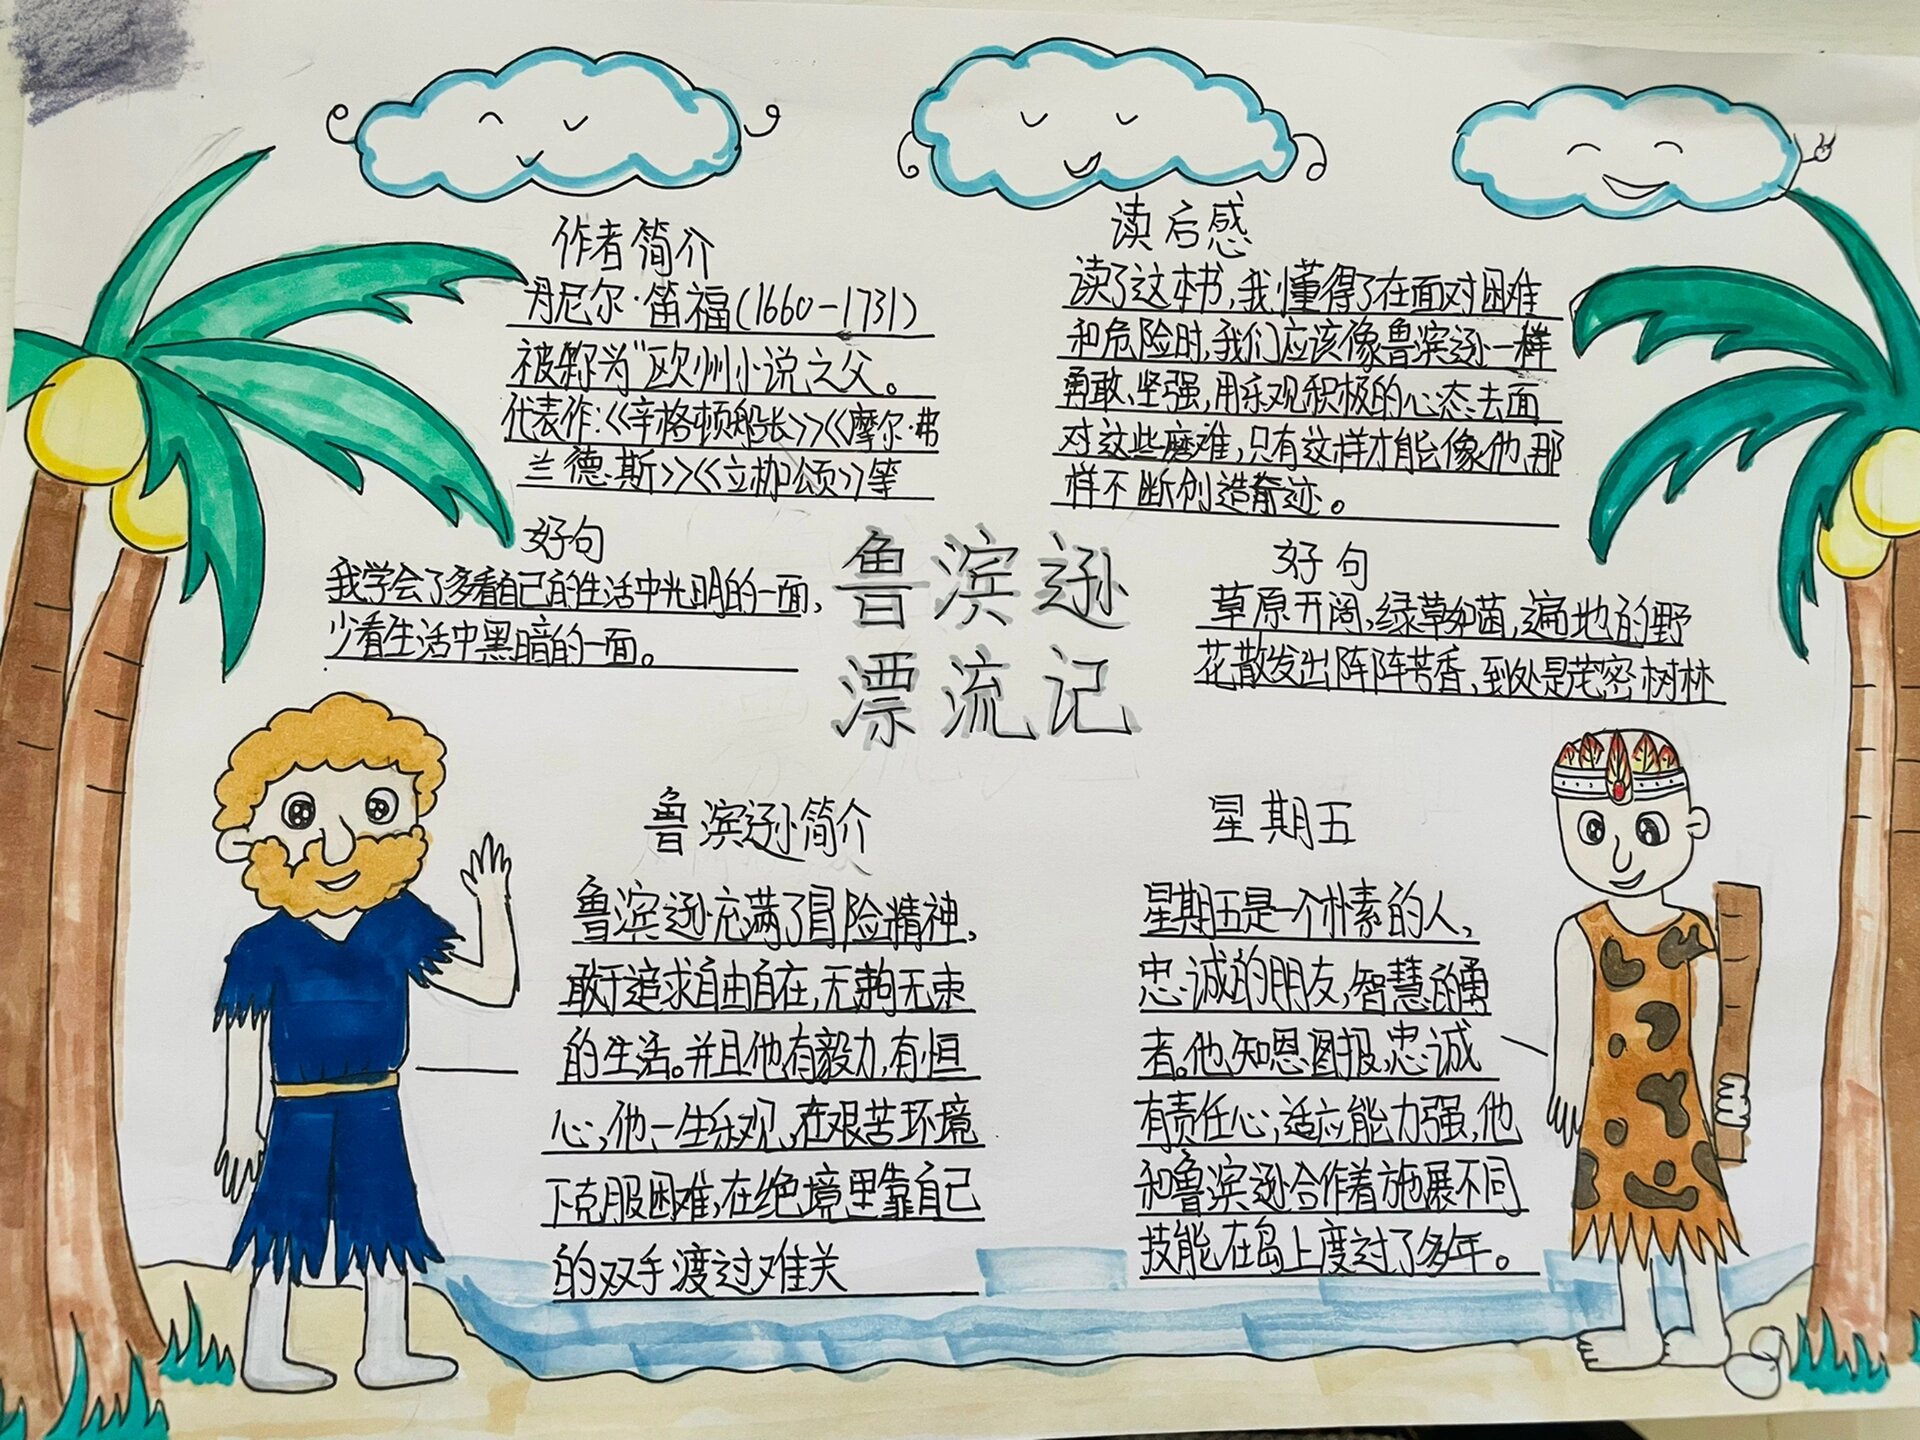 作者简介
丹尼尔·笛福(1660-1731)
被称为"欧州小说之父。
代表作:《辛格顿船长》《摩尔·弗
兰德斯》《立枷颂》等
读后感
读了这本书,我懂得了在面对困难
和危险时,我们应该像鲁滨逊一样
勇敢、坚强,用乐观积极的心态去面
对这些磨难,只有这样才能像他那
样不断创造奇迹。
好句
我学会了多看自己的生活中光明的一面,
少看生活中黑暗的一面。
鲁滨逊
漂流记
好句
草原开阔,绿草如茵,遍地的野
花散发出阵阵芳香,到处是茂密树林
鲁滨逊简介
鲁滨逊充满了冒险精神,
敢于追求自由自在,无拘无束
的生活。并且他有毅力,有恒
心,他一生乐观,在艰苦环境
下克服困难,在绝境里靠自己
的双手渡过难关
星期五
星期五是一个朴素的人,
忠诚的朋友,智慧的勇
者。他知恩图报,忠诚
有责任心,适应能力强,他
和鲁滨逊合作着施展不同
技能在岛上度过了多年。